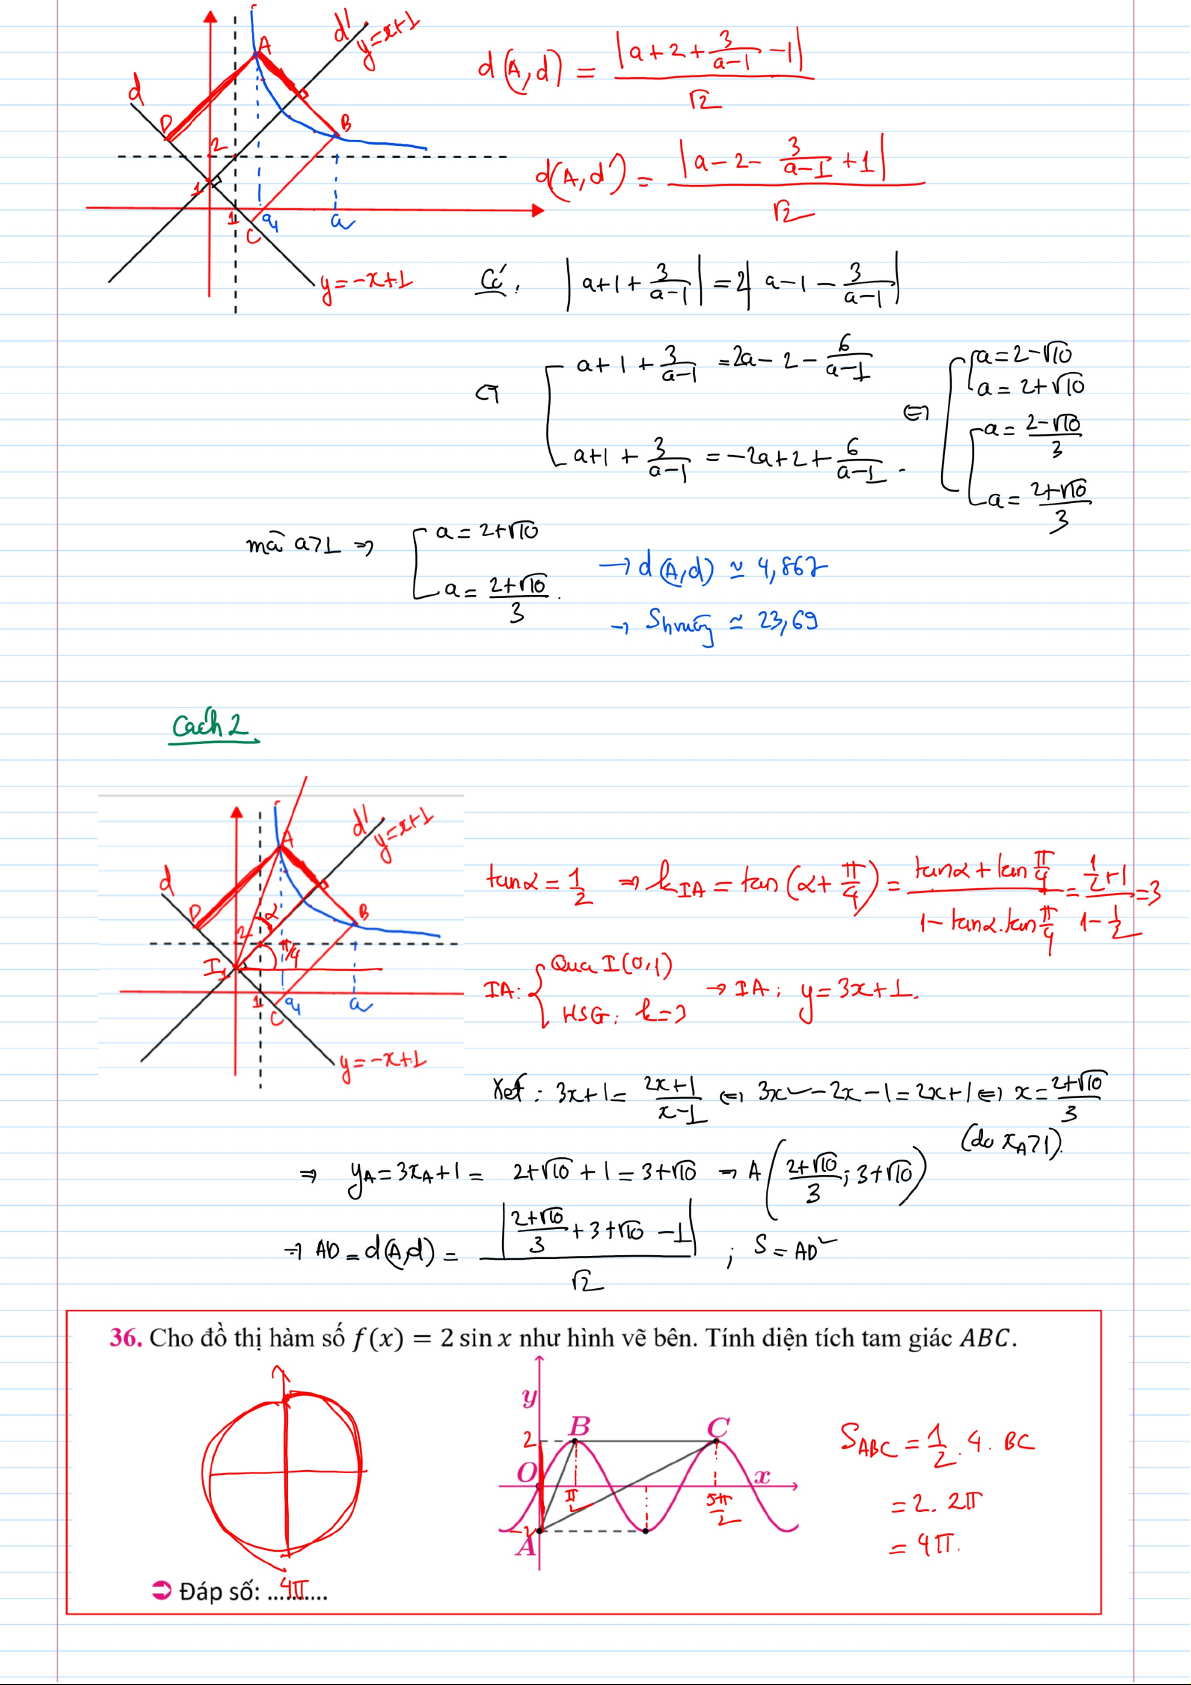 d
d'
y=x+1
A
D
B
2
1
1
C
a₁
a
y=-x+1
d(A,d) = |a+2+3/(a-1) -1| / √2
d(A,d') = |a-2-3/(a-1)+1| / √2
Có: |a+1+3/(a-1)| = 2|a-1-3/(a-1)|
⇔ [ a+1+3/(a-1) = 2a-2-6/(a-1)
a+1+3/(a-1) = -2a+2+6/(a-1).
⇔ [ a=2-√10
a=2+√10
a=(2-√10)/3
a=(2+√10)/3
mà a>1 ⇒ [ a=2+√10
a=(2+√10)/3.
→ d(A,d) ≃ 4,867
→ Shvuông ≃ 23,69
Cách 2
d
d'
y=x+1
A
D
B
2
α
π/4
I
1
1
C
a₁
a
y=-x+1
tanα=1/2 ⇒ k_IA = tan(α+π/4) = (tanα+tan π/4)/(1-tanα.tan π/4) = (1/2+1)/(1-1/2) = 3
IA: { Qua I(0,1)
HSG: k=3
→ IA: y=3x+1.
Xét: 3x+1 = (2x+1)/(x-1) ⇔ 3x²-2x-1=2x+1 ⇔ x=(2+√10)/3
(do x_A>1).
⇒ y_A=3x_A+1 = 2+√10+1=3+√10 ⇒ A((2+√10)/3; 3+√10)
⇒ AD=d(A,d) = |(2+√10)/3+3+√10-1| / √2 ; S=AD²
36. Cho đồ thị hàm số f(x) = 2 sin x như hình vẽ bên. Tính diện tích tam giác ABC.
y
2
B
C
O
π/2
5π/2
x
-2
A
S_ABC = 1/2.4.BC
=2.2π
=4π.
➲ Đáp số: ...4π...